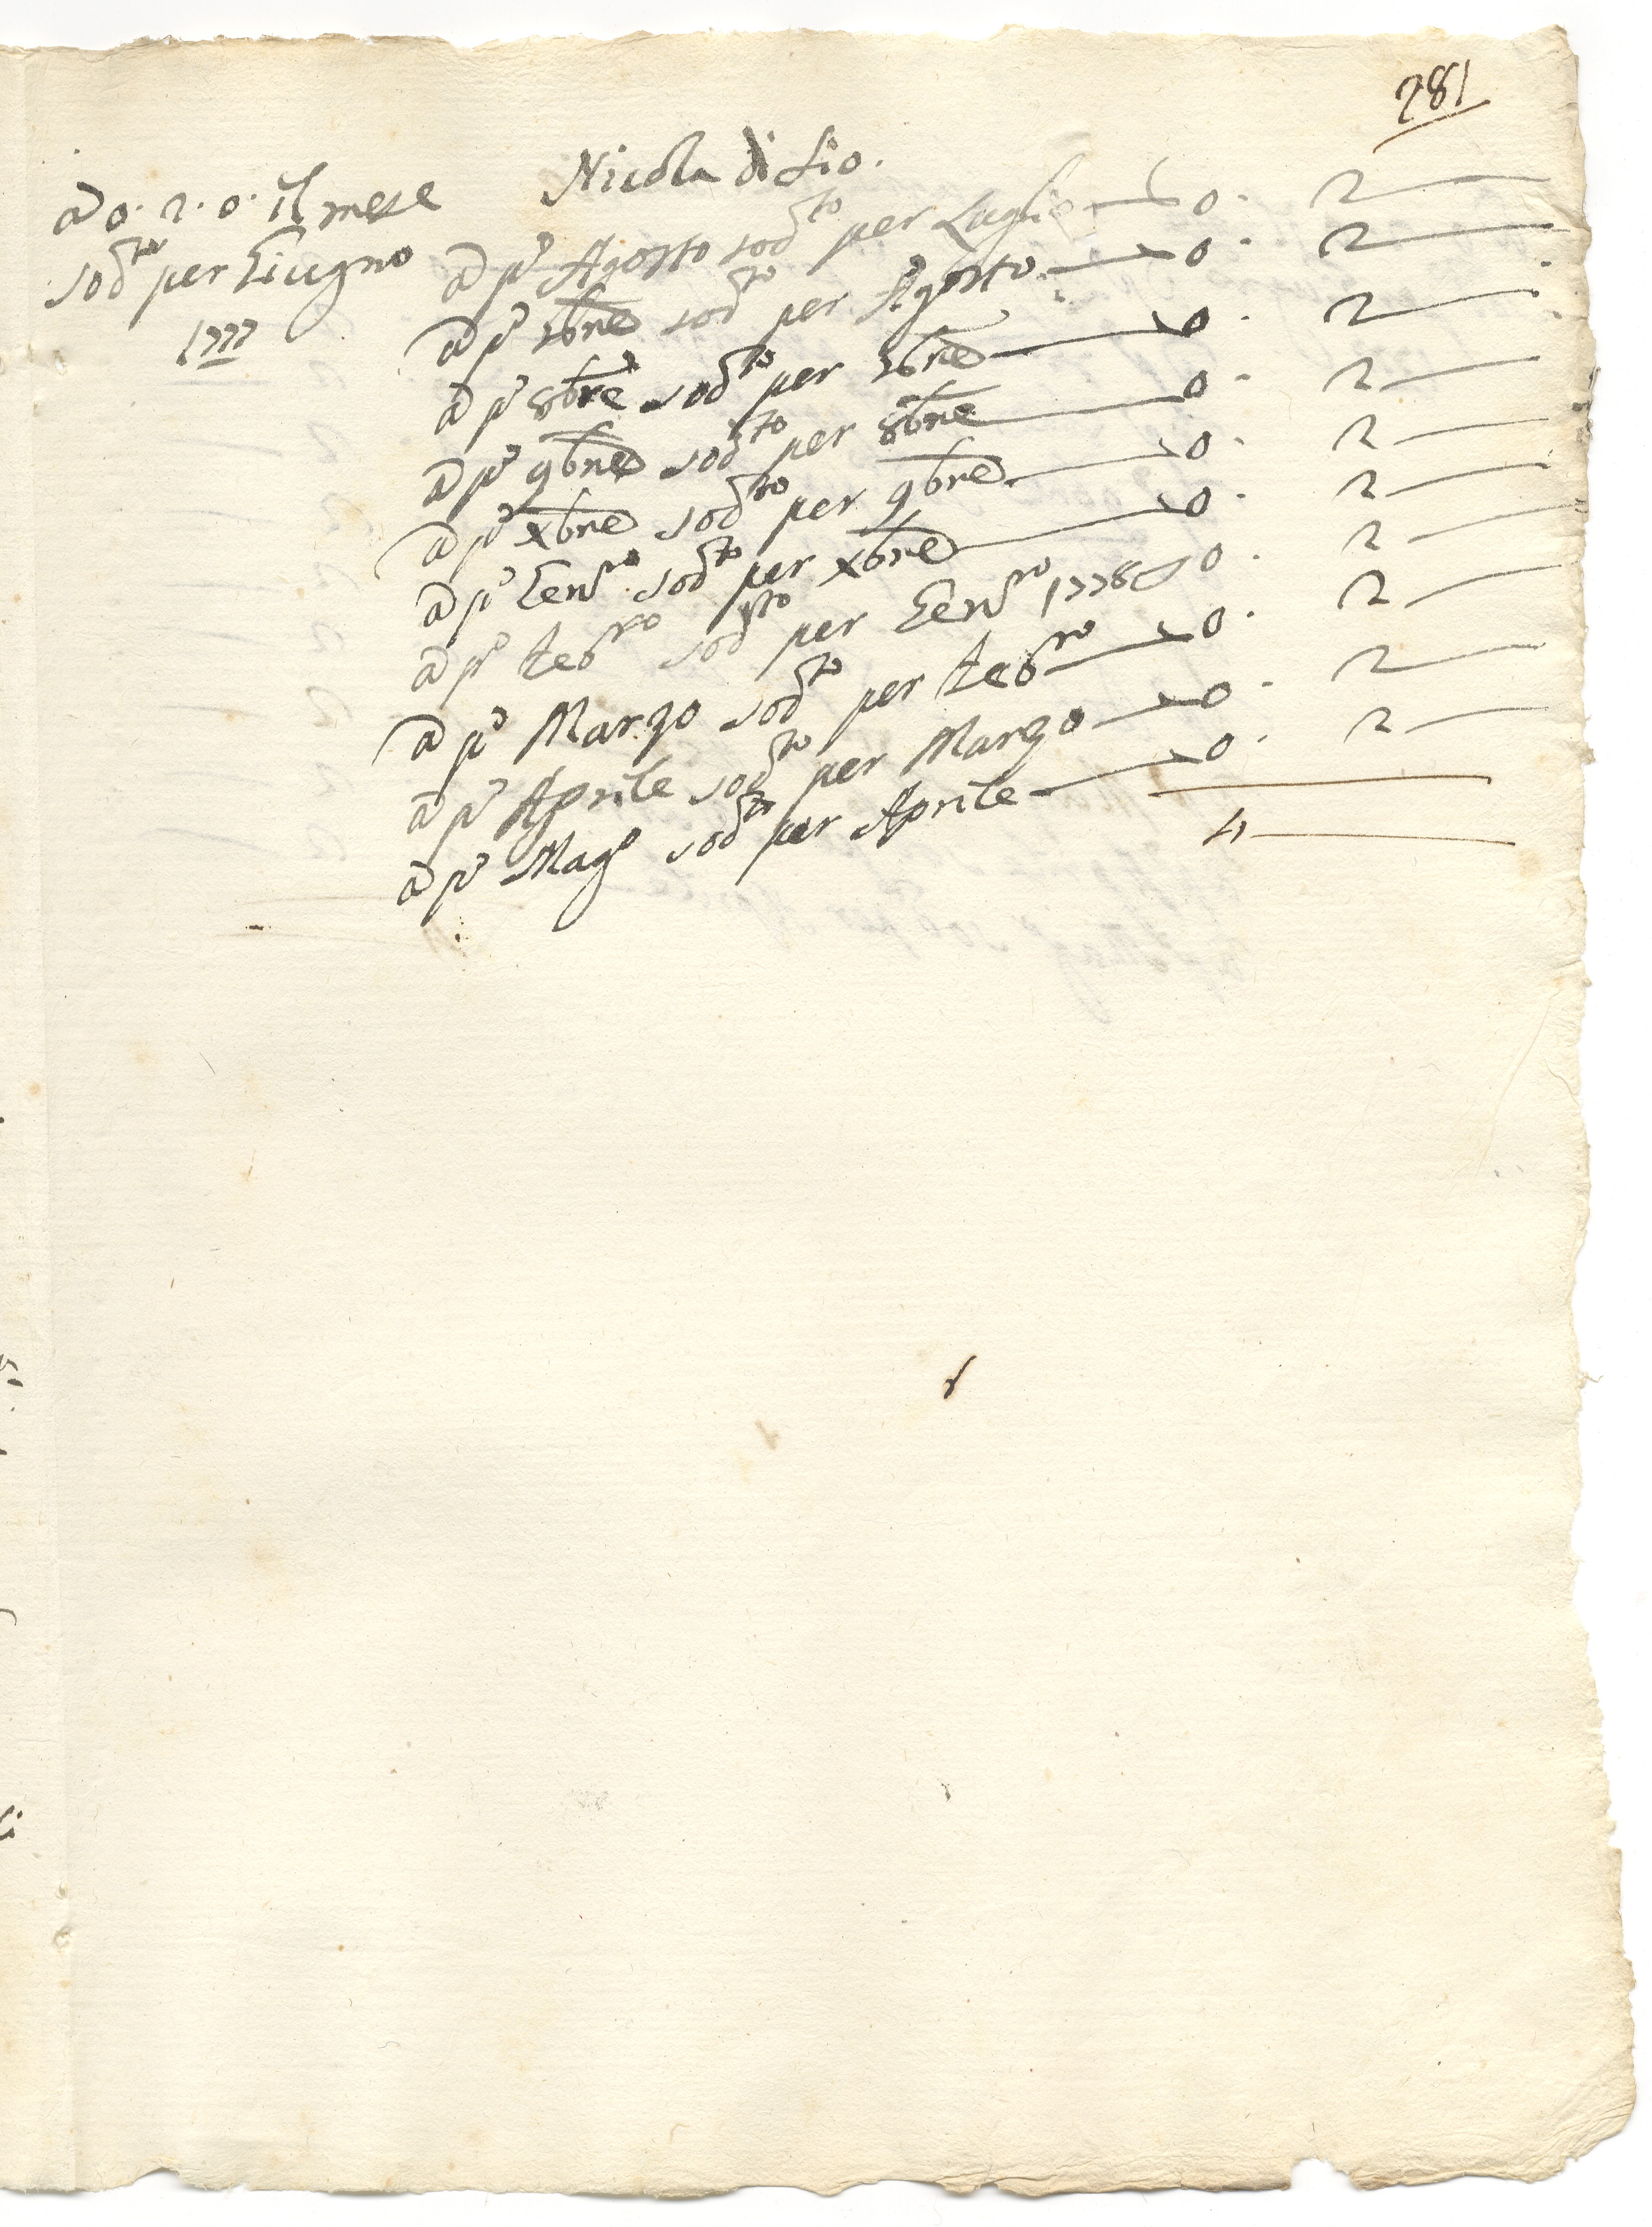 281
Nicola di Lio.
a 0. 2. 0. il mese
sod.to per Giugno
1777
a p.o Agosto sod.to per Luglio — 0. 2 —
a p.o 7bre sod.to per Agosto — 0. 2 —
a p.o 8bre sod.to per 7bre — 0. 2 —
a p.o 9bre sod.to per 8bre — 0. 2 —
a p.o Xbre sod.to per 9bre — 0. 2 —
a p.o Gen.ro sod.to per Xbre — 0. 2 —
a p.o feb.ro sod.to per Gen.ro 1778 — 0. 2 —
a p.o Marzo sod.to per feb.ro — 0. 2 —
a p.o Aprile sod.to per Marzo — 0. 2 —
a p.o Mag.o sod.to per Aprile — 0. 2 —